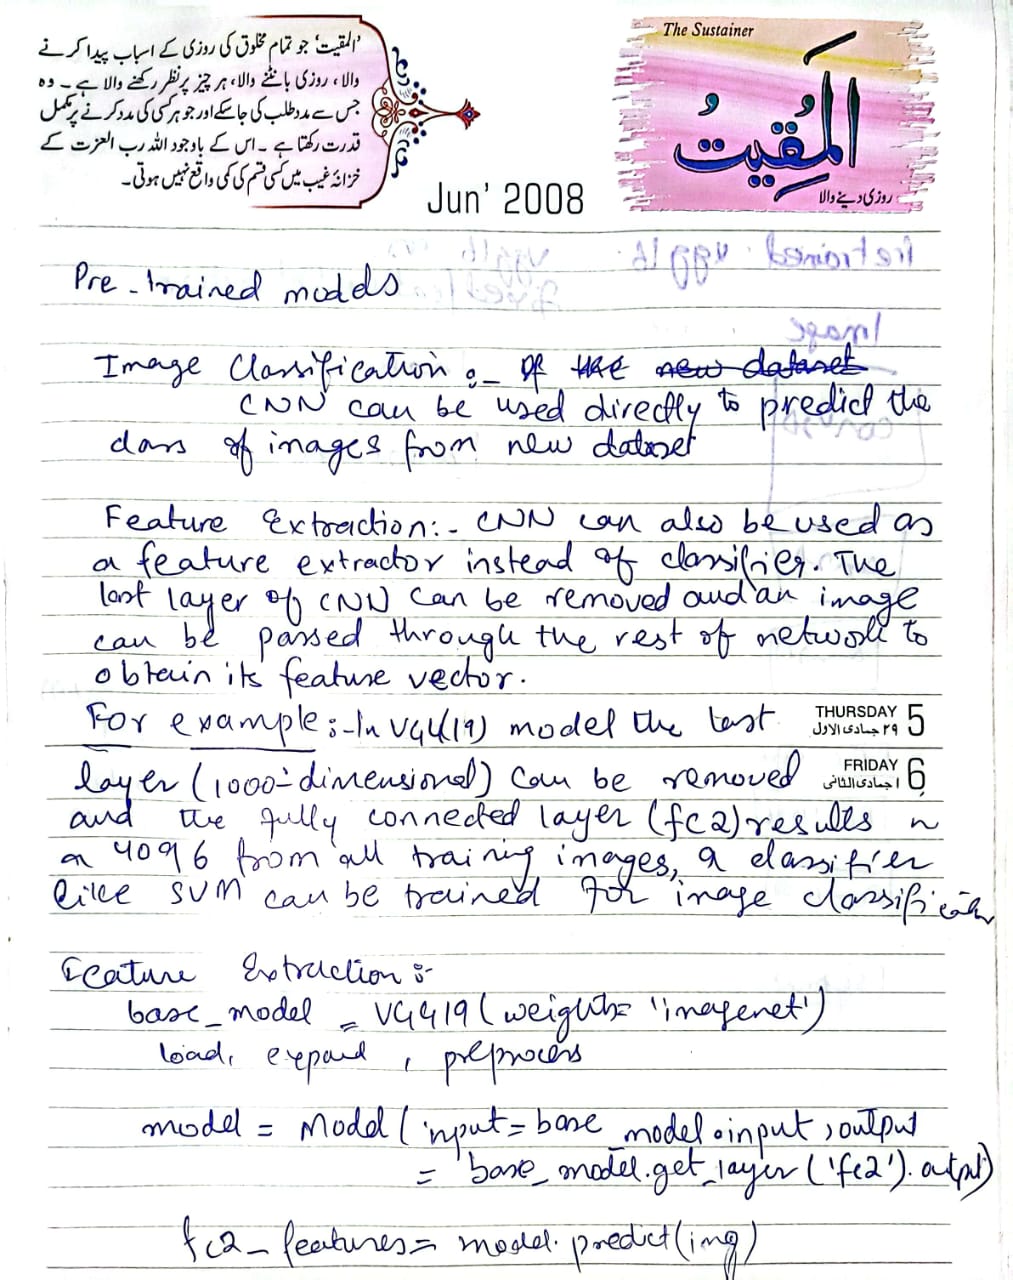 'المقیت' جو تمام مخلوق کی روزی کے اسباب پیدا کرنے
والا، روزی بانٹنے والا، ہر چیز پر نظر رکھنے والا ہے ۔ وہ
جس سے مدد طلب کی جا سکے اور جو ہر کسی کی مدد کرنے پر مکمل
قدرت رکھتا ہے ۔ اس کے باوجود اللہ رب العزت کے
خزانۂ غیب میں کسی قسم کی کمی واقع نہیں ہوتی۔
The Sustainer
المُقِيتُ
روزی دینے والا
Jun' 2008
Pre-trained models
Image Classification :- Of the new dataset
CNN can be used directly to predict the
class of images from new dataset
Feature Extraction:- CNN can also be used as
a feature extractor instead of classifier. The
last layer of CNN can be removed and an image
can be passed through the rest of network to
obtain its feature vector.
For example :- In VGG(19) model the last
THURSDAY 5
۲۹ جمادی الاول
layer (1000-dimensional) can be removed
FRIDAY 6
۱ جمادی الثانی
and the fully connected layer (fc2) results in
a 4096 from all training images, a classifier
like SVM can be trained for image classification
Feature Extraction :-
base_model = VGG19(weights= 'imagenet')
load, expand, preprocess
model = Model(input=base_model.input, output
= base_model.get_layer('fc2').output)
fc2_features= model.predict(img)